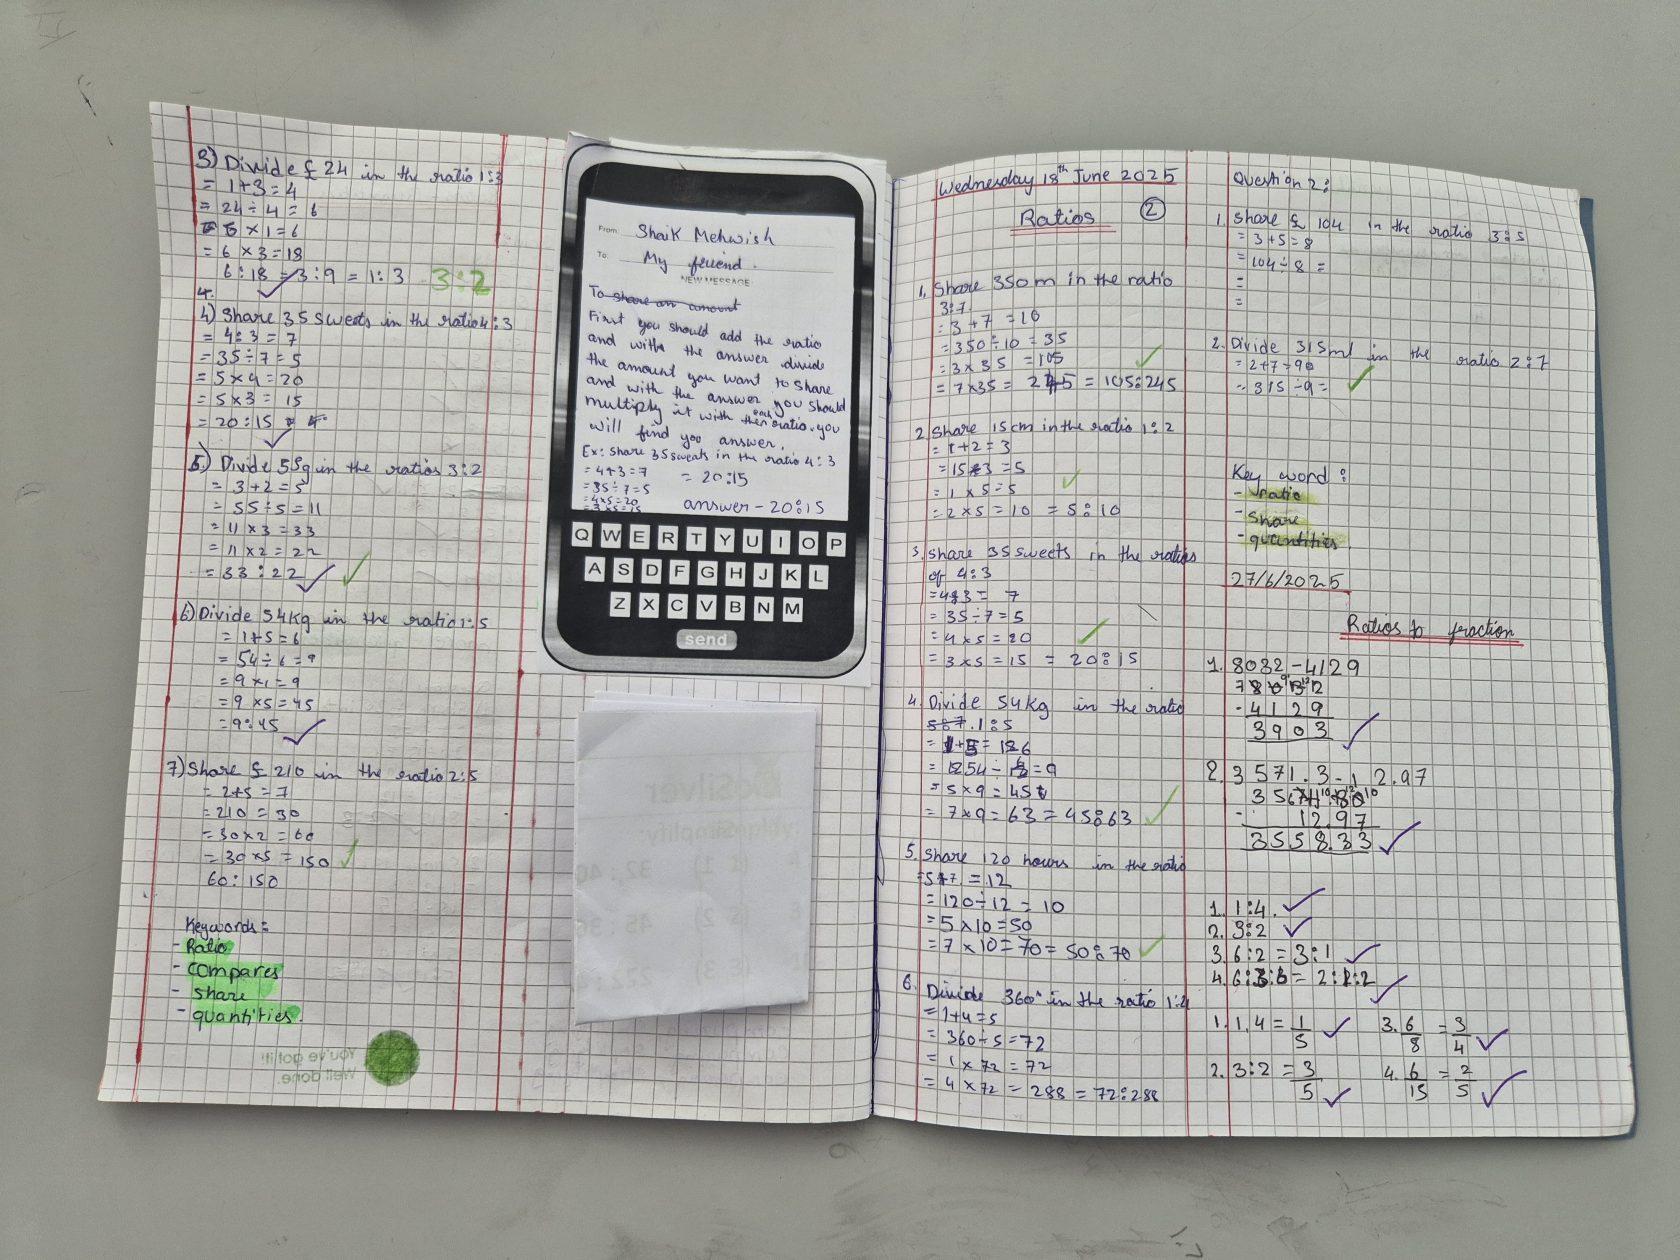 3) Divide £ 24 in the ratio 1:3
= 1+3=4
= 24 ÷ 4 = 6
= 6 × 1 = 6
= 6 × 3 = 18
6:18 = 3:9 = 1:3 3:2
4.
4) Share 35 sweets in the ratio 4:3
= 4:3 = 7
= 35 ÷ 7 = 5
= 5 × 4 = 20
= 5 × 3 = 15
= 20:15
5.) Divide 55g in the ratios 3:2
= 3+2=5
= 55 ÷ 5 = 11
= 11 × 3 = 33
= 11 × 2 = 22
= 33:22
6) Divide 54kg in the ratio 1:5
= 1+5=6
= 54 ÷ 6 = 9
= 9 × 1 = 9
= 9 × 5 = 45
= 9:45
7) Share £ 210 in the ratio 2:5
= 2+5 = 7
= 210 = 30
= 30 × 2 = 60
= 30 × 5 = 150
60:150
Keywords:
- Ratio
- compares
- share
- quantities.
You've got it!
Well done.
From: Shaik Mehwish
To: My friend.
NEW MESSAGE
To share an amount
First you should add the ratio
and with the answer divide
the amount you want to share
and with the answer you should
multiply it with each ratio. you
will find you answer.
Ex: share 35 sweats in the ratio 4:3
= 4+3=7 = 20:15
= 35 ÷ 7 = 5
= 4×5=20
= 3×5=15 answer - 20:15
Q W E R T Y U I O P
A S D F G H J K L
Z X C V B N M
send
Silver
Simplify:
(1) 32:40
(2) 45:36
Wednesday 18th June 2025
Ratios 2
1. Share 350m in the ratio
3:7.
= 3 + 7 = 10
= 350 ÷ 10 = 35
= 3 × 35 = 105
= 7×35 = 245 = 105:245
2. Share 15cm in the ratio 1:2
= 1+2=3
= 15÷3 = 5
= 1 × 5 = 5
= 2 × 5 = 10 = 5:10
3. Share 35 sweets in the ratios
of 4:3
= 4+3 = 7
= 35 ÷ 7 = 5
= 4 × 5 = 20
= 3 × 5 = 15 = 20:15
4. Divide 54kg in the ratio
5:7. 1:5
= 5 × 9 = 45
= 7×9 = 63 = 45:63
5. Share 120 hours in the ratio
= 5+7 = 12
= 120 ÷ 12 = 10
= 5 × 10 = 50
= 7 × 10 = 70 = 50:70
6. Divide 360° in the ratio 1:4
= 1+4=5
= 360 ÷ 5 = 72
= 1 × 72 = 72
= 4 × 72 = 288 = 72:288
Question 2:
1. Share £ 104 in the ratio 3:5
= 3+5=8
= 104 ÷ 8 =
=
=
2. Divide 315ml in the ratio 2:7
= 315 ÷ 9 =
Key word:
- ratio
- share
- quantities
27/6/2025
Ratios to fraction
1. 8032 - 4129
- 4129
3903
2. 3571.3 - 12.97
- 12.97
3558.33
1. 1:4.
2. 3:2
3. 6:2 = 3:1
1. 1.4 = 1/5 3. 6/8 = 3/4
2. 3:2 = 3/5 4. 6/15 = 2/5